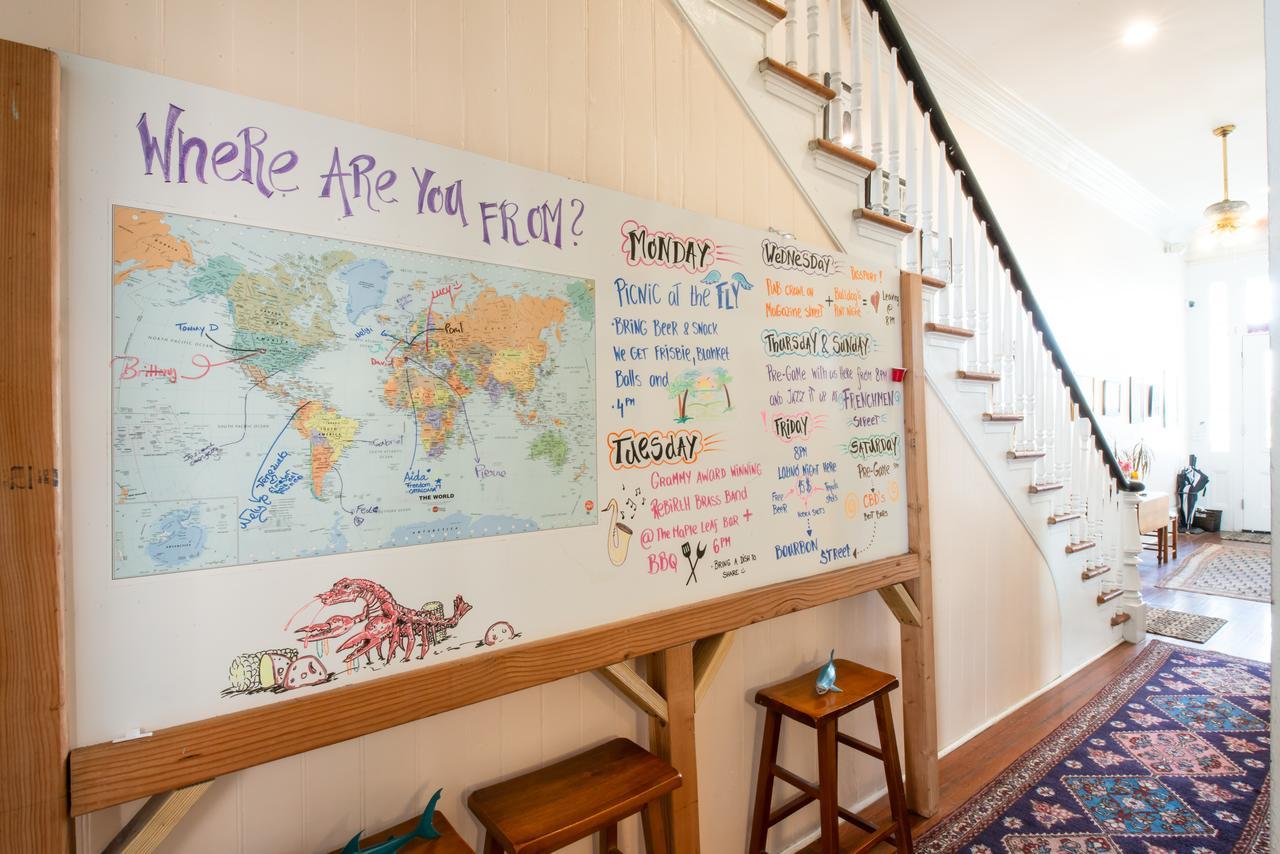 Where Are You From?
Tommy D
Brittany
Lucy
Paul
David
Gabriel
Aida
Freedom
CATALONIA
Pierre
Fede
THE WORLD
NORTH PACIFIC OCEAN
SOUTH PACIFIC OCEAN
ANTARCTICA
MONDAY
PICNIC at the FLY
• BRING BEER & SNACK
We GET FRISBIE, BLANKET
Balls and
• 4PM
TUESDAY
GRAMMY AWARD WINNING
ReBiRtH BRASS BAND
@ The Maple Leaf Bar +
BBQ 6PM
• BRING A DISH TO
SHARE
WEDNESDAY
PUB CRAWL ON
MaGazine street
+
=
Leaving
@
8PM
THURSDAY & SUNDAY
Pre-Game with us Here from 8PM
AND JAZZ IT UP at FRENCHMEN
Street
FRIDAY
8PM
Latino Night Here
Free
Beer
BOURBON Street
SATURDAY
Pre-Game
CBD's